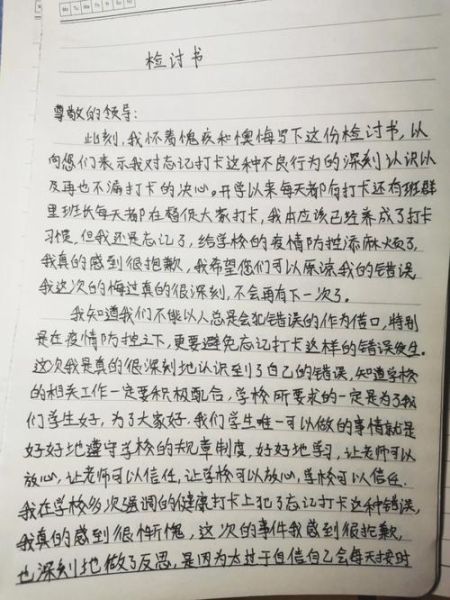 检讨书
尊敬的领导:
此刻,我怀着愧疚和懊悔写下这份检讨书,以
向您们表示我对忘记打卡这种不良行为的深刻认识以
及再也不漏打卡的决心。开学以来每天都有打卡还有班群
里班长每天都在督促大家打卡,我本应该已经养成了打卡
习惯,但我还是忘记了,给学校的疫情防控添麻烦了,
我真的感到很抱歉,我希望您们可以原谅我的错误
我这次的悔过真的很深刻,不会再有下一次了。
我知道我们不能以人总是会犯错误的作为借口,特别
是在疫情防控之下,更要避免忘记打卡这样的错误发生。
这次我是真的很深刻地认识到了自己的错误,知道学校
的相关工作一定要积极配合,学校所要求的一定是为了我
们学生好,为了大家好,我们学生唯一可以做的事情就是
好好地遵守学校的规章制度,好好地学习,让老师可以
放心,让老师可以信任,让学校可以放心,学校可以信任.
我在学校多次强调的健康打卡上犯了忘记打卡这种错误,
我真的感到很惭愧,这次的事件我感到很抱歉,
也深刻地做了反思,是因为太过于自信自己会每天按时